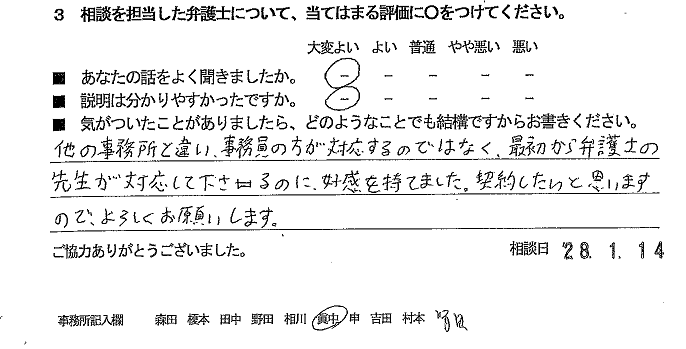 3 相談を担当した弁護士について、当てはまる評価に○をつけてください。
大変よい よい 普通 やや悪い 悪い
■ あなたの話をよく聞きましたか。 - - - - -
■ 説明は分かりやすかったですか。 - - - - -
■ 気がついたことがありましたら、どのようなことでも結構ですからお書きください。
他の事務所と違い、事務員の方が対応するのではなく、最初から弁護士の
先生が対応して下さるのに、好感を持てました。契約したいと思います
ので、よろしくお願いします。
ご協力ありがとうございました。
相談日 28. 1. 14
事務所記入欄 森田 榎本 田中 野田 相川 眞中 申 吉田 村本